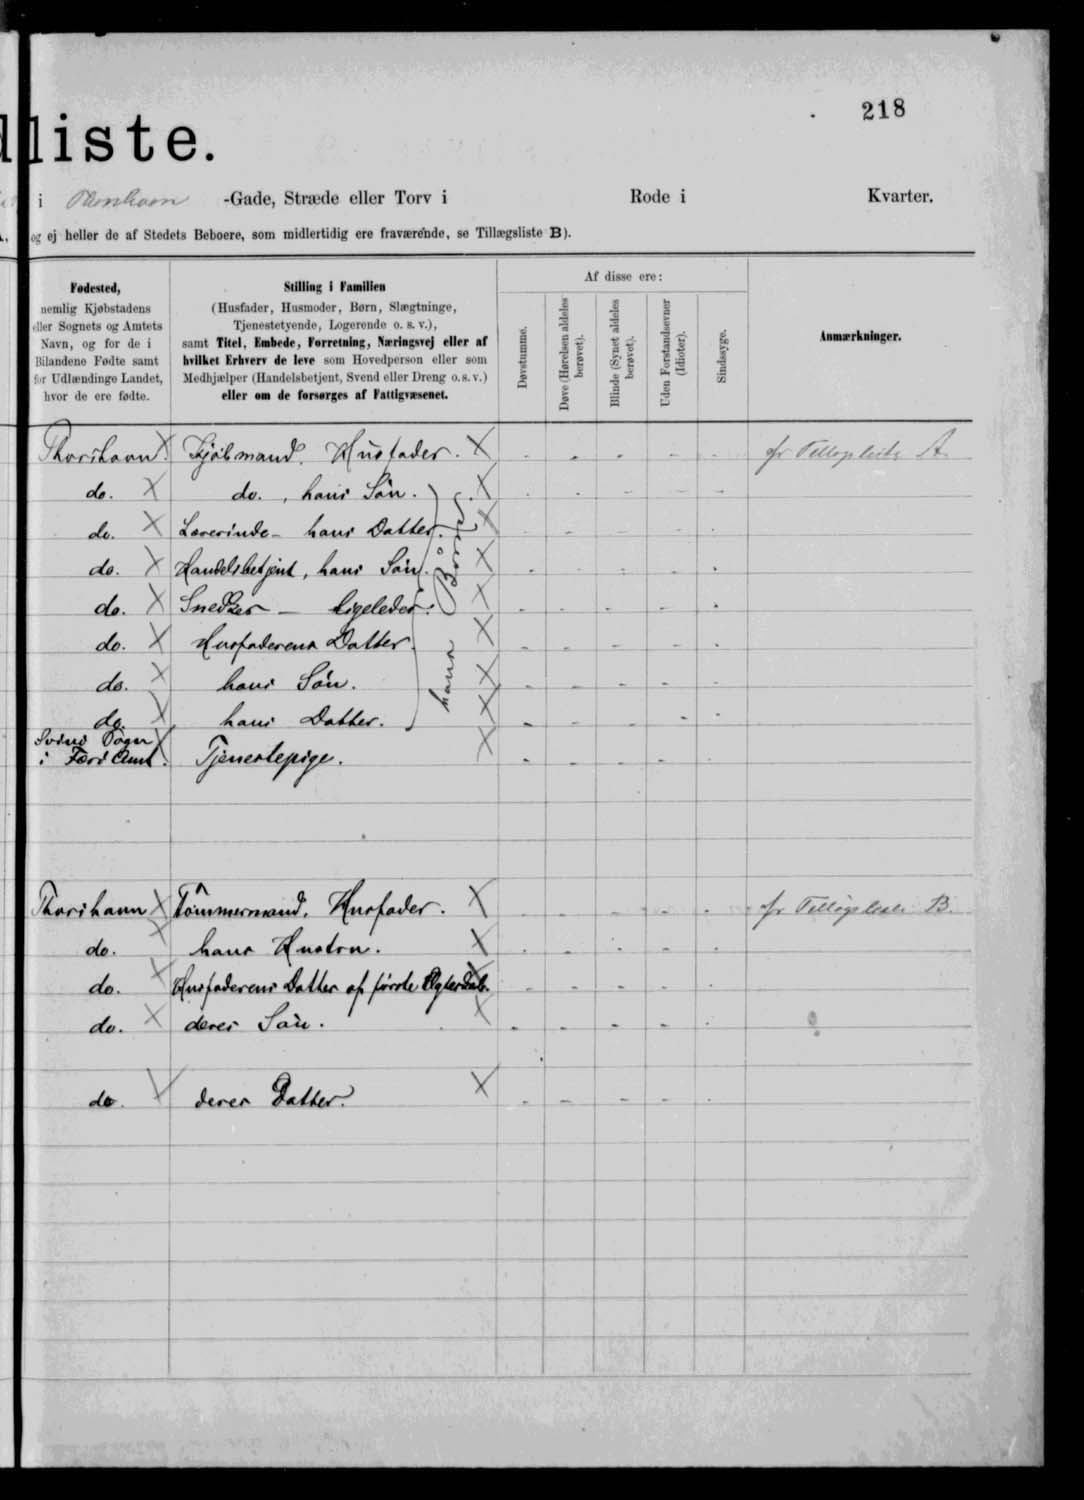 218
liste.
i Thorshavn -Gade, Stræde eller Torv i Rode i Kvarter.
og ej heller de af Stedets Beboere, som midlertidig ere fraværende, se Tillægsliste B).
Fødested,
nemlig Kjøbstadens
eller Sognets og Amtets
Navn, og for de i
Bilandene Fødte samt
for Udlændinge Landet,
hvor de ere fødte.
Stilling i Familien
(Husfader, Husmoder, Børn, Slægtninge,
Tjenestetyende, Logerende o. s. v.),
samt Titel, Embede, Forretning, Næringsvej eller af
hvilket Erhverv de leve som Hovedperson eller som
Medhjælper (Handelsbetjent, Svend eller Dreng o. s. v.)
eller om de forsørges af Fattigvæsenet.
Af disse ere:
Døvstumme.
Døve (Hørelsen aldeles
berøvet).
Blinde (Synet aldeles
berøvet).
Uden Forstandsevner
(Idioter).
Sindssyge.
Anmærkninger.
Thorshavn. Kjøbmand. Husfader. cfr Tillægsliste A.
do. do., hans Søn.
do. Lærerinde - hans Datter.
do. Handelsbetjent, hans Søn.
do. Snedker - ligeledes.
do. Husfaderens Datter.
do. hans Søn.
do. hans Datter.
hans Børn.
Sogn
i Færø Amt. Tjenestepige.
Thorshavn Tømmermand. Husfader. cfr Tillægsliste B.
do. hans Hustru.
do. Husfaderens Datter af første Ægteskab.
do. deres Søn.
do. deres Datter.